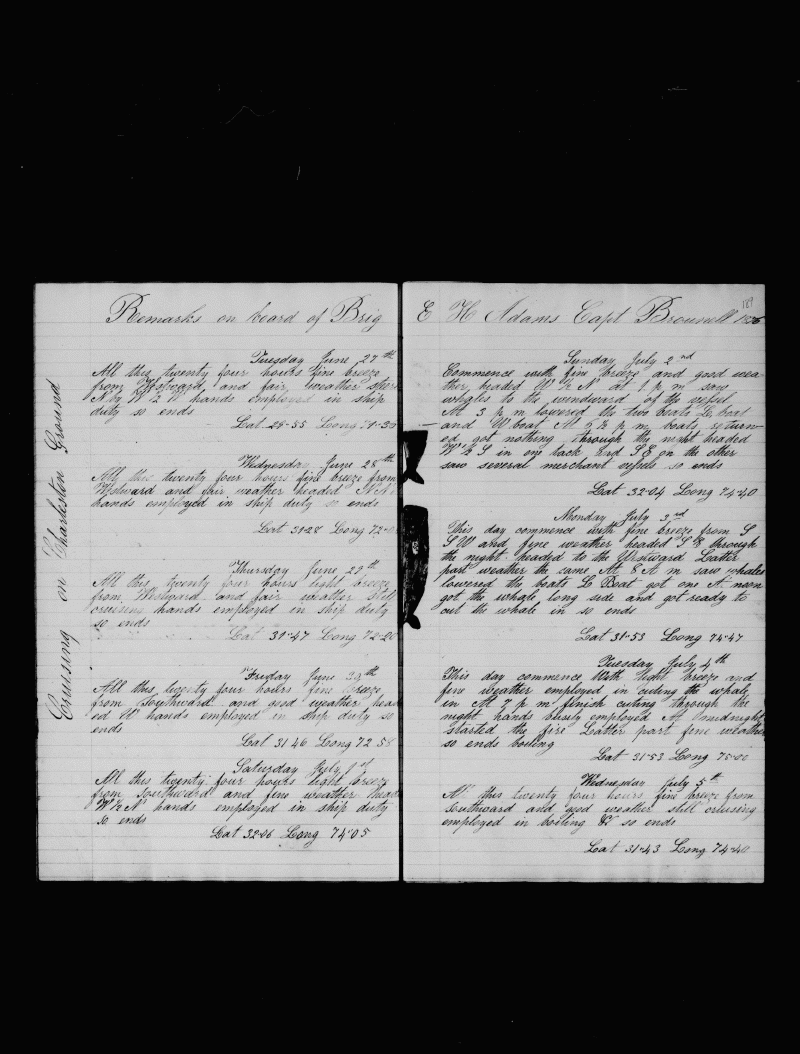 Remarks on board of Brig
Cruising on Charleston Ground
Tuesday June 27th
All this twenty four hours fine breeze
from Westward and fair weather
N by W hands employed in ship
duty so ends
Lat 28-55 Long
Wednesday June 28th
All this twenty four hours fine breeze from
Westward and fair weather headed
hands employed in ship duty so ends
Lat 31-28 Long 72-0
Thursday June 29th
All this twenty four hours light breeze
from Westward and fair weather still
cruising hands employed in ship duty
so ends
Lat 31-47 Long 72-20
Friday June 30th
All this twenty four hours fine breeze
from Southward and good weather head
ed W hands employed in ship duty so
ends
Lat 31 46 Long 72 58
Saturday July 1st
All this twenty four hours light breez
from Southward and fine weather head
W½N hands employed in ship duty
so ends
Lat 32-06 Long 74-05
189
E H Adams Capt Brownell 1876
Sunday July 2nd
Commence with fine breeze and good wea-
ther headed W½N at 1 p m saw
whales to the windward of the vessel
At 3 p m lowered the two boats Lb boat
and W boat At p m boats return-
ed got nothing through the night headed
W½S in one tack and S E on the other
saw several merchant vessels so ends
Lat 32-04 Long 74-40
Monday July 3rd
This day commence with fine breeze from S
S W and fine weather headed through
the night headed to the Westward Latter
part weather the same At 8 A m saw whales
lowered the boats Lb Boat got one At noon
got the whale long side and got ready to
cut the whale in so ends
Lat 31-53 Long 74-47
Tuesday July 4th
This day commence With light breeze and
fine weather employed in cuting the whale
in At 7 p m finish cuting through the
night hands busely employed At midnight
started the fire Latter part fine weather
so ends boiling
Lat 31-53 Long 75-00
Wednesday July 5th
All this twenty four hours fine breeze from
Southward and good weather still cruising
employed in boiling &c so ends
Lat 31-43 Long 74-40